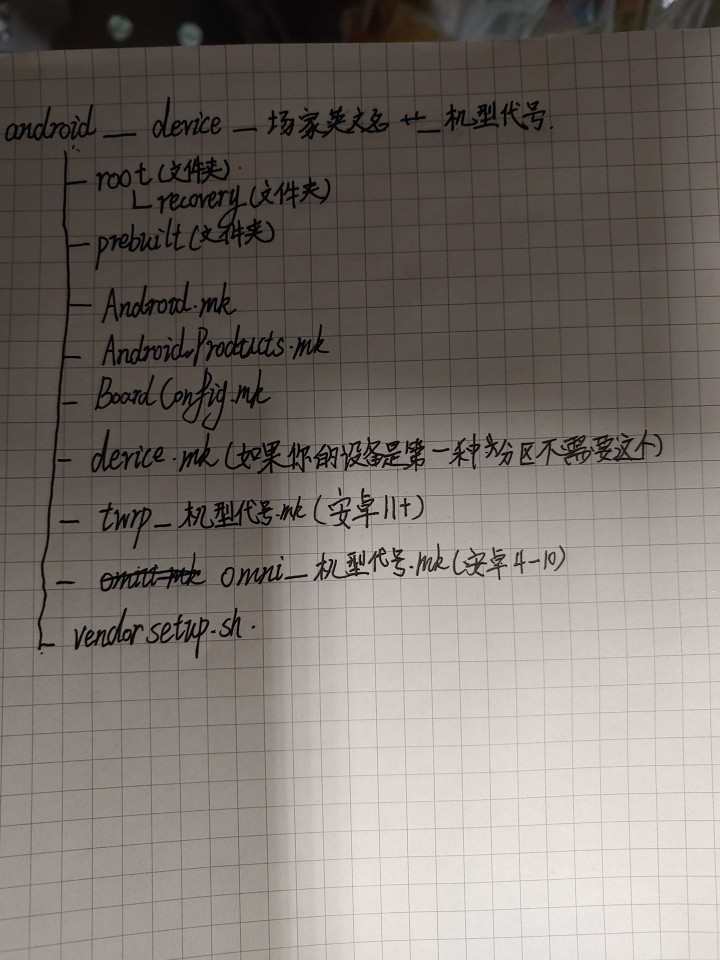 android _ device _ 场家英文名 _ 机型代号.
root (文件夹)
recovery (文件夹)
prebuilt (文件夹)
Android.mk
AndroidProducts.mk
BoardConfig.mk
device.mk (如果你的设备是第一种分区不需要这个)
twrp_机型代号.mk (安卓11+)
omni_机型代号.mk (安卓4-10)
vendorsetup.sh.